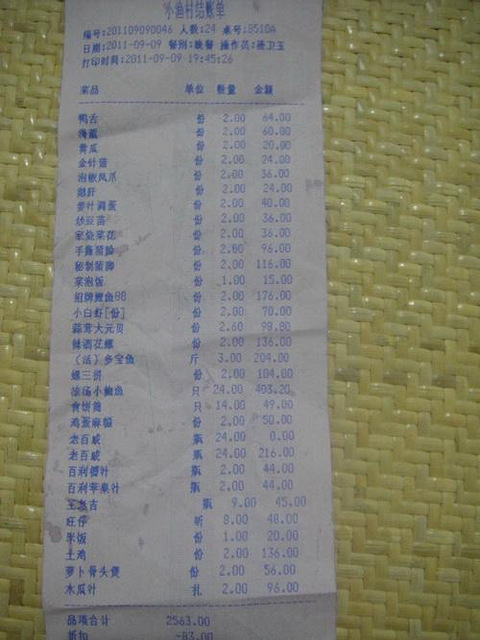 小渔村结账单
编号:201109090046 人数:24 桌号:8510A
日期:2011-09-09 餐别:晚餐 操作员:潘卫玉
打印时间:2011-09-09 19:45:26
菜品 单位 数量 金额
鸭舌 份 2.00 64.00
海蜇 份 2.00 60.00
黄瓜 份 2.00 20.00
金针菇 份 2.00 24.00
泡椒凤爪 份 2.00 36.00
鹅肝 份 2.00 24.00
姜汁调蛋 份 2.00 40.00
炒豆苗 份 2.00 36.00
家烧菜花 份 2.00 36.00
手撕 份 2.00 96.00
秘制 份 2.00 116.00
菜泡饭 份 1.00 15.00
招牌鲍鱼88 份 2.00 176.00
小白虾[份] 份 2.00 70.00
蒜茸大元贝 份 2.60 98.80
辣酒花螺 份 2.00 136.00
(活)多宝鱼 斤 3.00 204.00
螺三拼 份 2.00 104.00
浓汤小鲍鱼 只 24.00 493.20
食饼筒 只 14.00 49.00
鸡蛋麻糍 份 2.00 50.00
老百威 瓶 24.00 0.00
老百威 瓶 24.00 216.00
百利橙汁 瓶 2.00 44.00
百利苹果汁 瓶 2.00 44.00
王老吉 瓶 9.00 45.00
旺仔 听 8.00 48.00
米饭 份 1.00 20.00
土鸡 份 2.00 136.00
萝卜骨头煲 份 2.00 56.00
木瓜汁 扎 2.00 96.00
品项合计 2563.00
折扣 -83.00